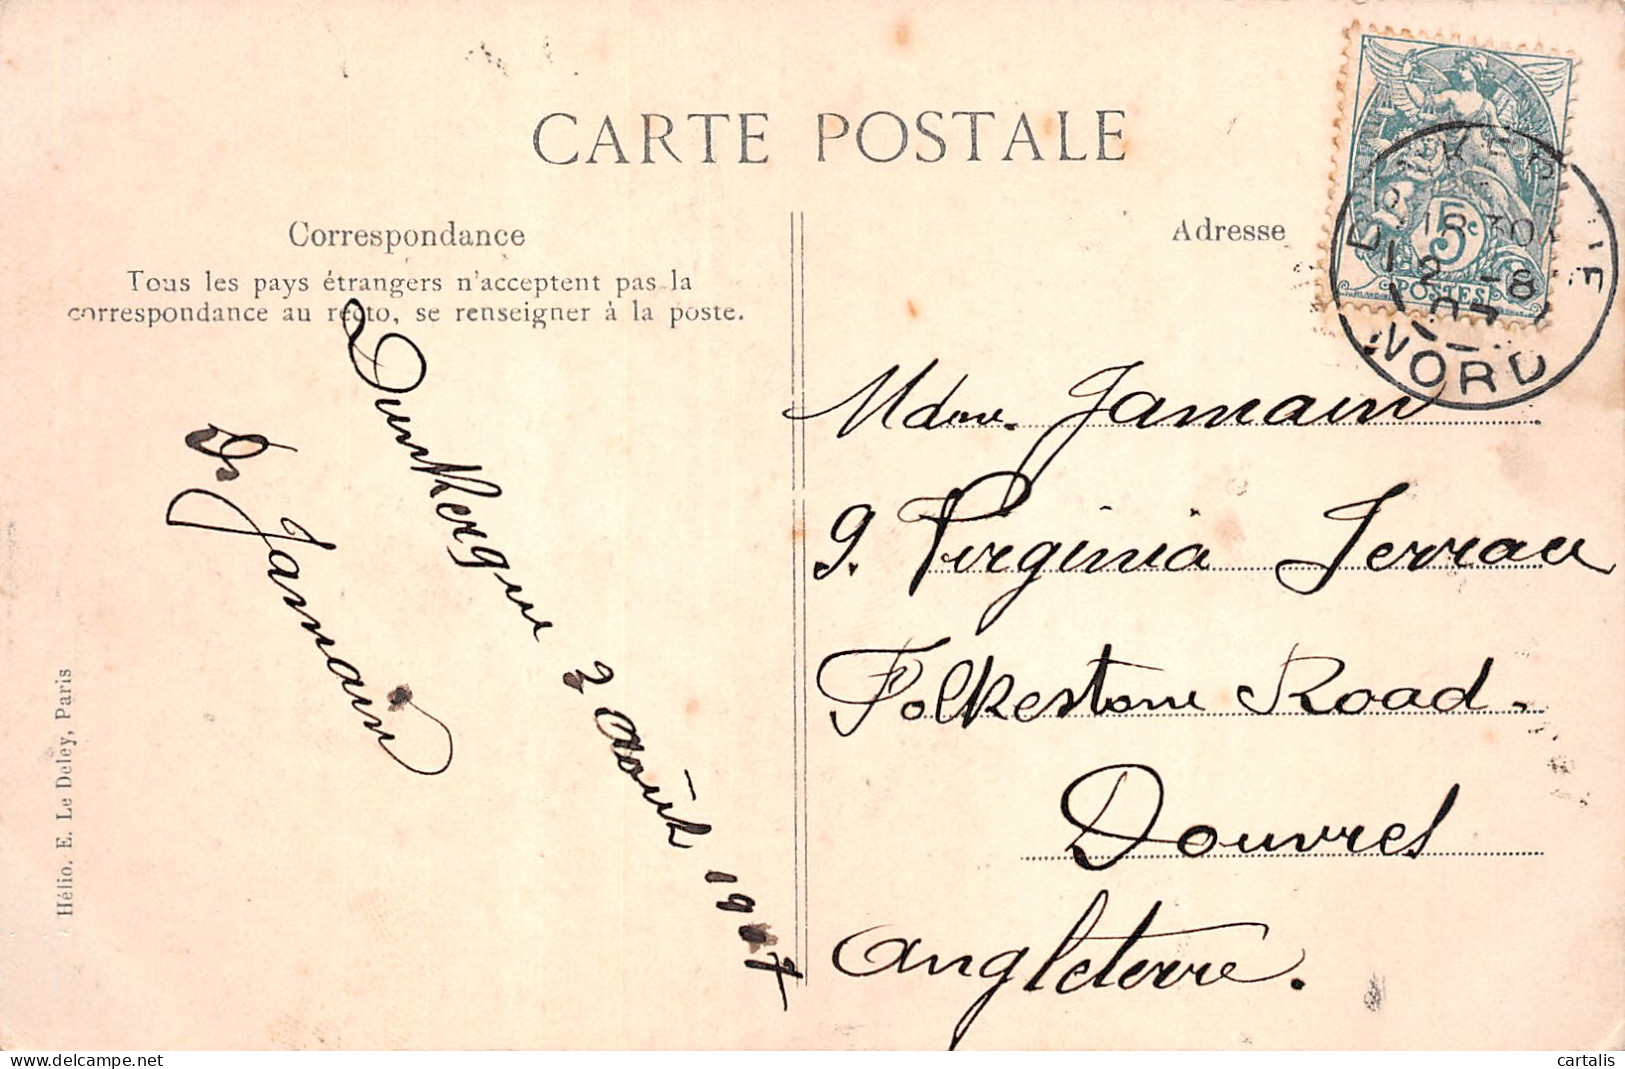 CARTE POSTALE
Correspondance
Tous les pays étrangers n'acceptent pas la
correspondance au recto, se renseigner à la poste.
Dunkerque 2 août 1907
Dr Jamain
Hélio. E. Le Deley, Paris
Adresse
5c
POSTES
18 30
2 -8
07
NORD
Mdme. Jamain
9. Virginia Terrace
Folkestone Road.
Douvres
Angleterre.
www.delcampe.net
cartalis